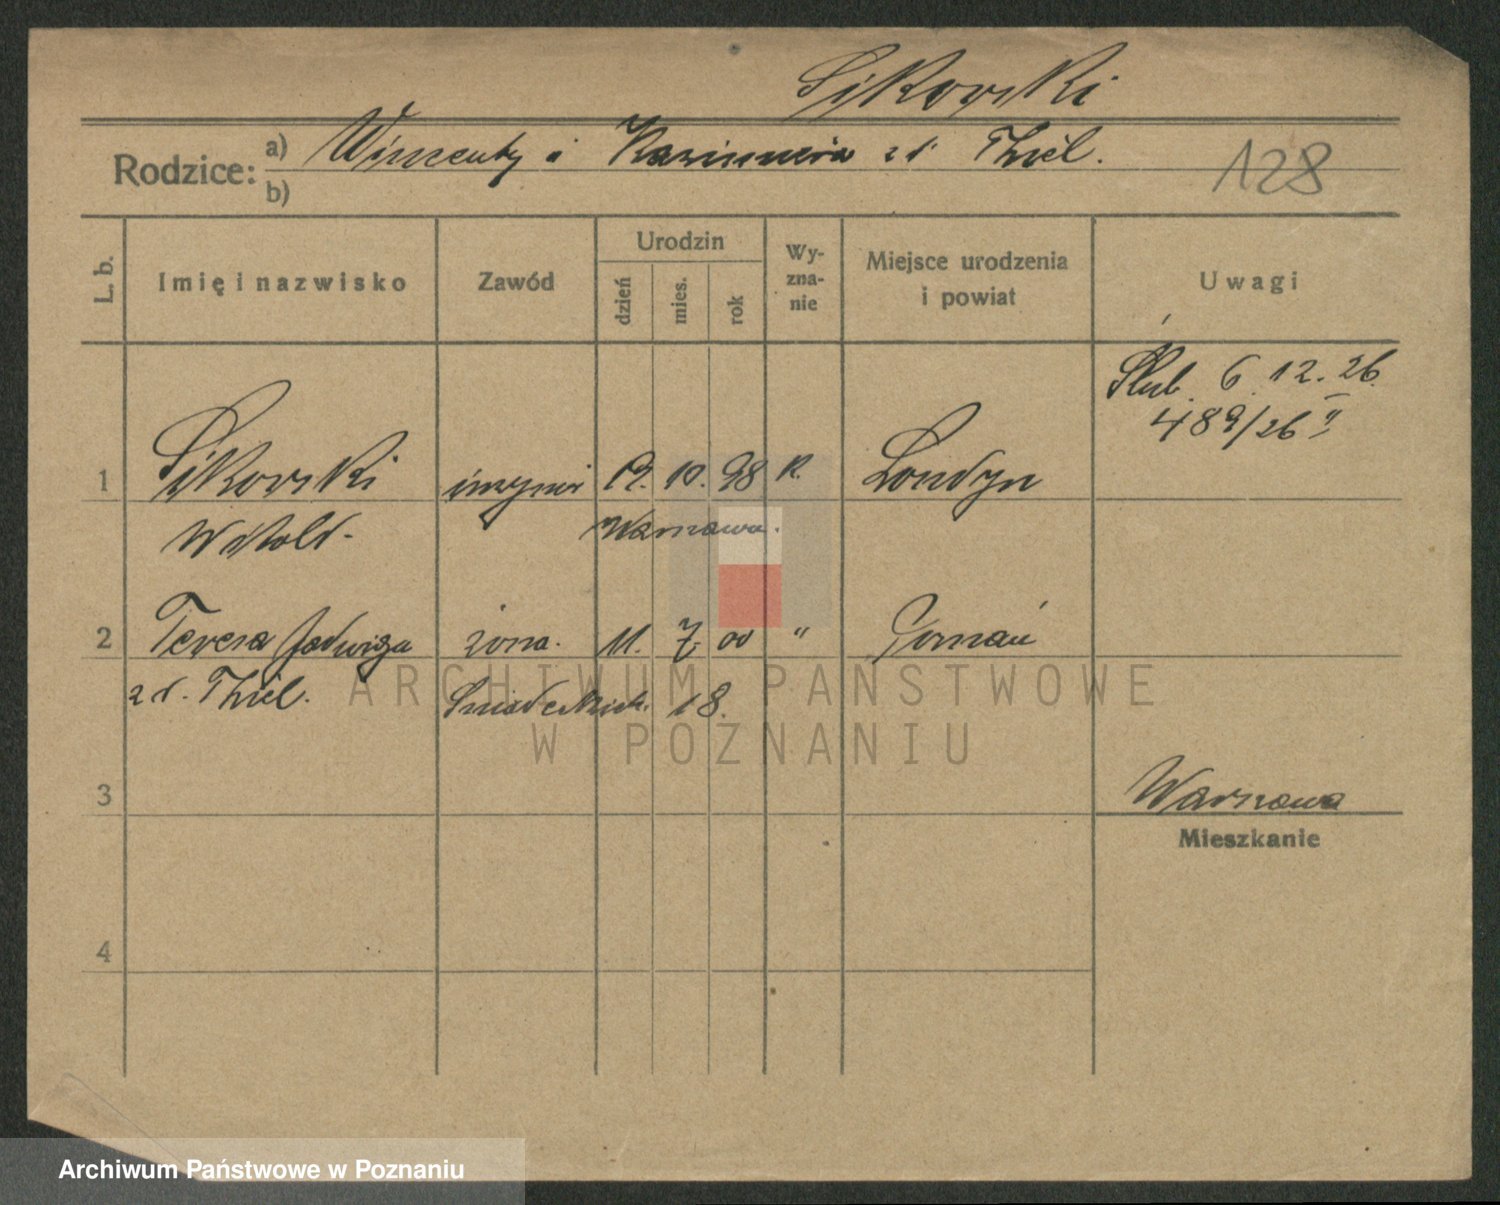 Sikorski
Rodzice: a) Wincenty i Kazimiera zd. Thiel.
b)
128
L. b. Imię i nazwisko Zawód Urodzin dzień mies. rok Wy-zna-nie Miejsce urodzenia i powiat Uwagi
Ślub. 6.12.26.
489/26 II
1 Sikorski inżynier 19. 10. 98 R. Londyn
Witold - Warszawa.
2 Teresa Jadwiga żona. 11. 7. 00 " Poznań
zd. Thiel. Śniadeckich 18.
ARCHIWUM PAŃSTWOWE
W POZNANIU
3 Warszawa
Mieszkanie
4
Archiwum Państwowe w Poznaniu